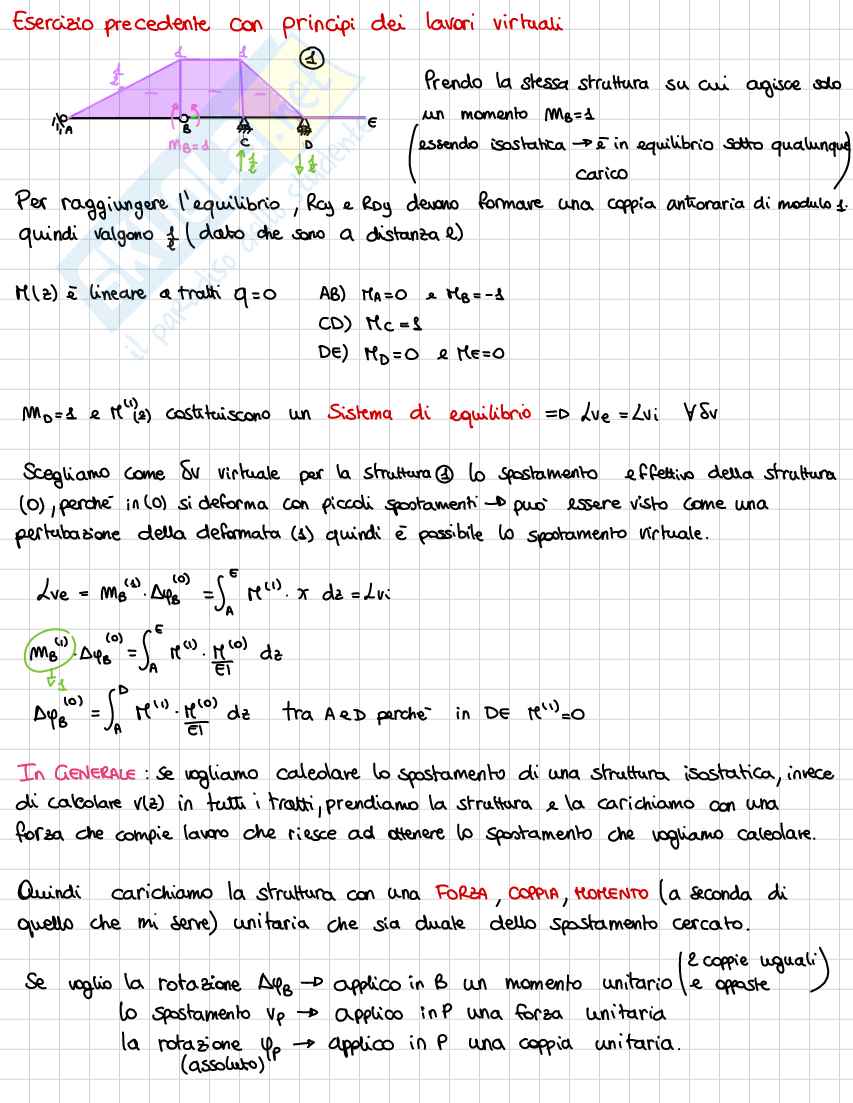 Esercizio precedente con principi dei lavori virtuali
1 1 ①
1/ℓ
A B C D E
m_B=1 ↑1/ℓ ↓1/ℓ
Prendo la stessa struttura su cui agisce solo
un momento m_B=1
(essendo isostatica → è in equilibrio sotto qualunque
carico)
Per raggiungere l'equilibrio, Rcy e RDy devono formare una coppia antioraria di modulo 1.
quindi valgono 1/ℓ (dato che sono a distanza ℓ)
M(z) è lineare a tratti q=0 AB) M_A=0 e M_B=-1
CD) M_C=1
DE) M_D=0 e M_E=0
m_D=1 e M⁽¹⁾(z) costituiscono un Sistema di equilibrio => Lve = Lvi ∀δv
Scegliamo come δv virtuale per la struttura ① lo spostamento effettivo della struttura
(0), perché in (0) si deforma con piccoli spostamenti → può essere visto come una
pertubazione della deformata (1) quindi è possibile lo spostamento virtuale.
Lve = m_B⁽¹⁾ · Δφ_B⁽⁰⁾ = ∫_A^E M⁽¹⁾ · x dz = Lvi
m_B⁽¹⁾ · Δφ_B⁽⁰⁾ = ∫_A^E M⁽¹⁾ · M⁽⁰⁾/EI dz
↓1
Δφ_B⁽⁰⁾ = ∫_A^D M⁽¹⁾ · M⁽⁰⁾/EI dz tra A e D perché in DE M⁽¹⁾=0
In GENERALE : se vogliamo calcolare lo spostamento di una struttura isostatica, invece
di calcolare v(z) in tutti i tratti, prendiamo la struttura e la carichiamo con una
forza che compie lavoro che riesce ad ottenere lo spostamento che vogliamo calcolare.
Quindi carichiamo la struttura con una FORZA, COPPIA, MOMENTO (a seconda di
quello che mi serve) unitaria che sia duale dello spostamento cercato.
Se voglio la rotazione Δφ_B → applico in B un momento unitario (2 coppie uguali
e opposte)
lo spostamento v_P → applico in P una forza unitaria
la rotazione φ_P → applico in P una coppia unitaria.
(assoluto)
SKUOLA.net
il paradiso dello studente